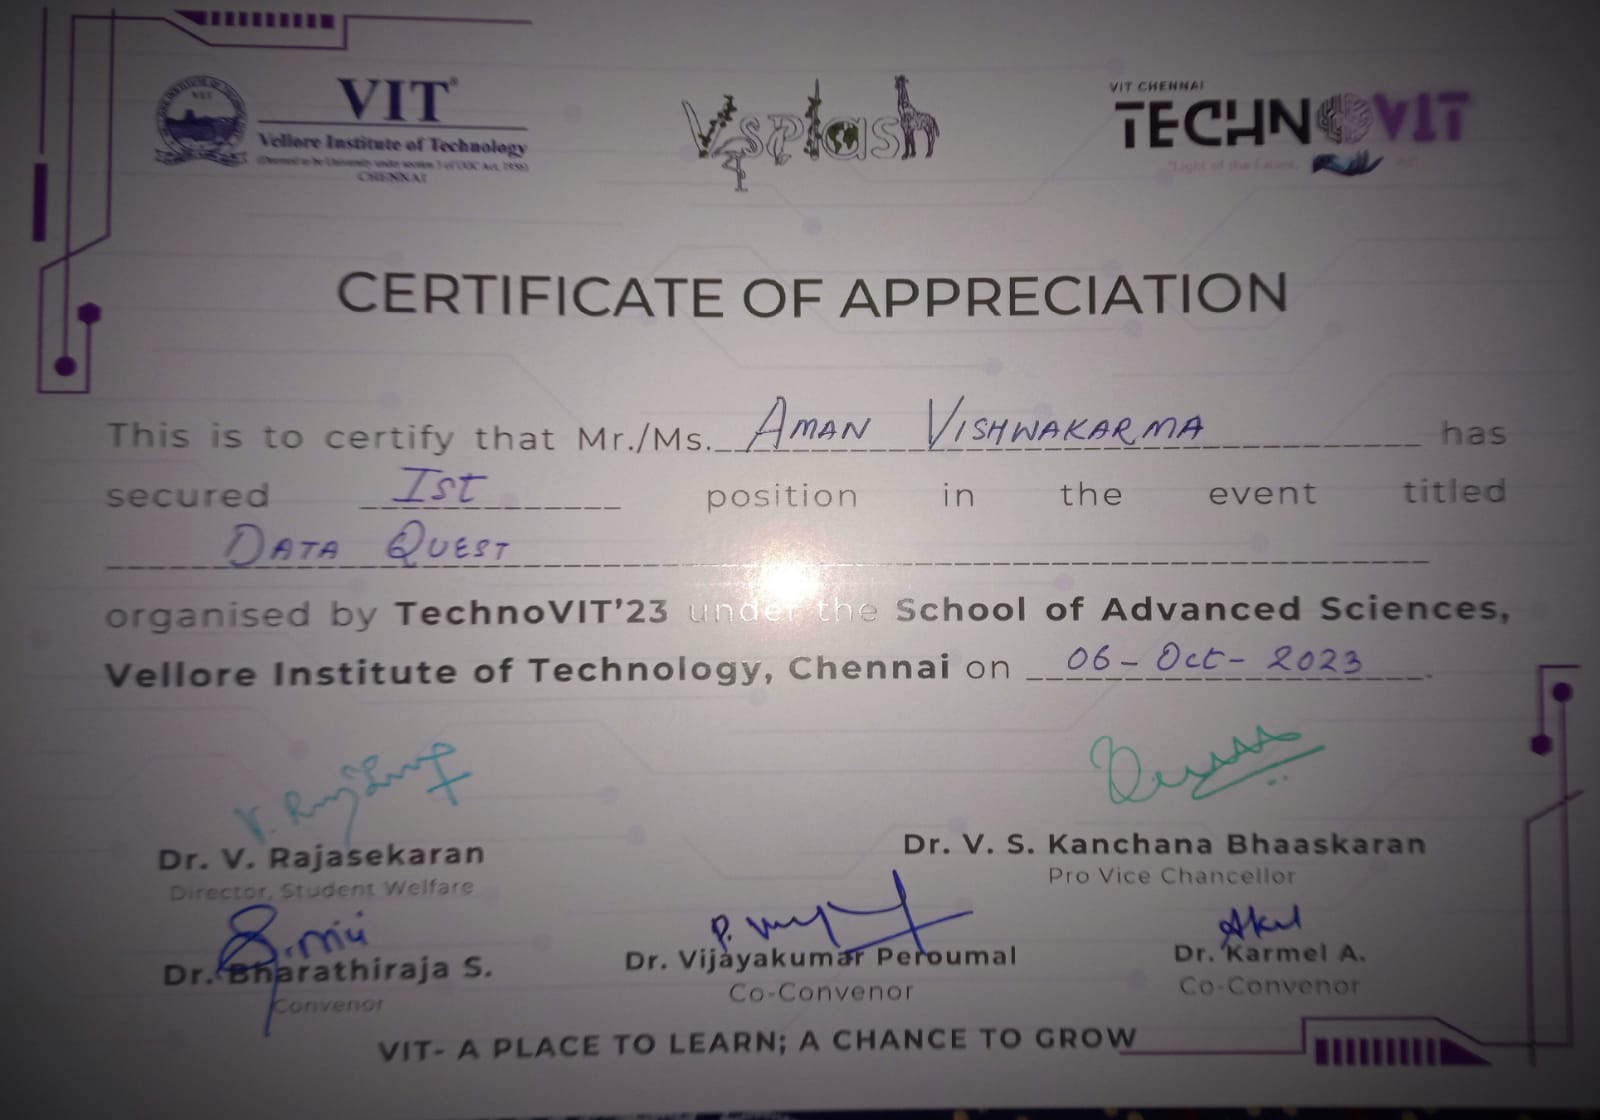 VIT
Vellore Institute of Technology
(Deemed to be University under section 3 of UGC Act, 1956)
CHENNAI
Vsplash
VIT CHENNAI
TECHNOVIT
"Light of the Future,
CERTIFICATE OF APPRECIATION
This is to certify that Mr./Ms. AMAN VISHWAKARMA has
secured Ist position in the event titled
DATA QUEST
organised by TechnoVIT'23 under the School of Advanced Sciences,
Vellore Institute of Technology, Chennai on 06-Oct-2023.
Dr. V. Rajasekaran
Director, Student Welfare
Dr. V. S. Kanchana Bhaaskaran
Pro Vice Chancellor
Dr. Bharathiraja S.
Convenor
Dr. Vijayakumar Peroumal
Co-Convenor
Dr. Karmel A.
Co-Convenor
VIT- A PLACE TO LEARN; A CHANCE TO GROW